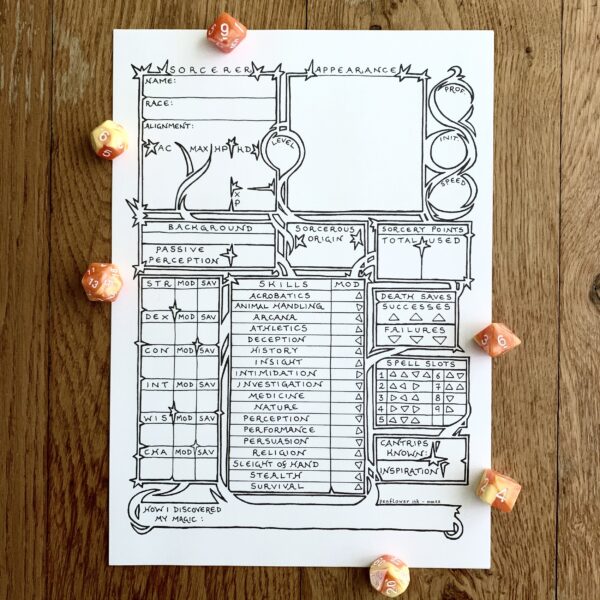 SORCERER
NAME:
RACE:
ALIGNMENT:
AC MAX HP HD
XP
LEVEL
APPEARANCE
PROF.
INIT.
SPEED
BACKGROUND
PASSIVE
PERCEPTION
SORCEROUS
ORIGIN
SORCERY POINTS
TOTAL USED
STR MOD SAV
DEX MOD SAV
CON MOD SAV
INT MOD SAV
WIS MOD SAV
CHA MOD SAV
SKILLS MOD
ACROBATICS
ANIMAL HANDLING
ARCANA
ATHLETICS
DECEPTION
HISTORY
INSIGHT
INTIMIDATION
INVESTIGATION
MEDICINE
NATURE
PERCEPTION
PERFORMANCE
PERSUASION
RELIGION
SLEIGHT OF HAND
STEALTH
SURVIVAL
DEATH SAVES
SUCCESSES
FAILURES
SPELL SLOTS
1 6
2 7
3 8
4 9
5
CANTRIPS
KNOWN:
INSPIRATION
HOW I DISCOVERED
MY MAGIC:
9
6
5
13
3 6
4
20